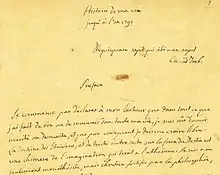 1
Histoire de ma vie
jusqu'à l'an 1797
Nequicquam sapit qui sibi non sapit
Cic. ad Treb.
Preface
Je commence par declarer à mon lecteur que dans tout ce que
j'ai fait de bon ou de mauvais dans toute ma vie, je suis sûr d'avoir
merité ou demerité, et que par consequent je dois me croire libre.
La doctrine des Stoïciens, et de toute autre secte sur la force du Destin est
une chimere de l'imagination qui tient à l'atheisme. Je suis non
seulement monotheiste, mais chretien fortifié par la philosophie,